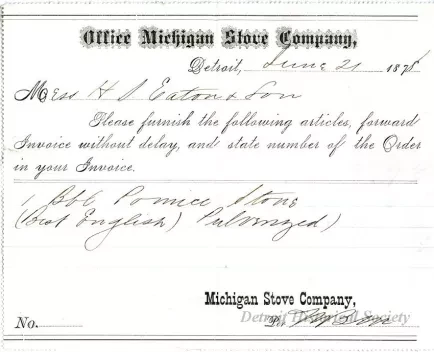 Office Michigan Stove Company,
Detroit, June 21 187
Mess H S Eaton & Son
Please furnish the following articles, forward
Invoice without delay, and state number of the Order
in your Invoice.
1 Bbl Pomice Stone
(Best English) Pulverized)
Michigan Stove Company,
Detroit Historical Society
No.
Per